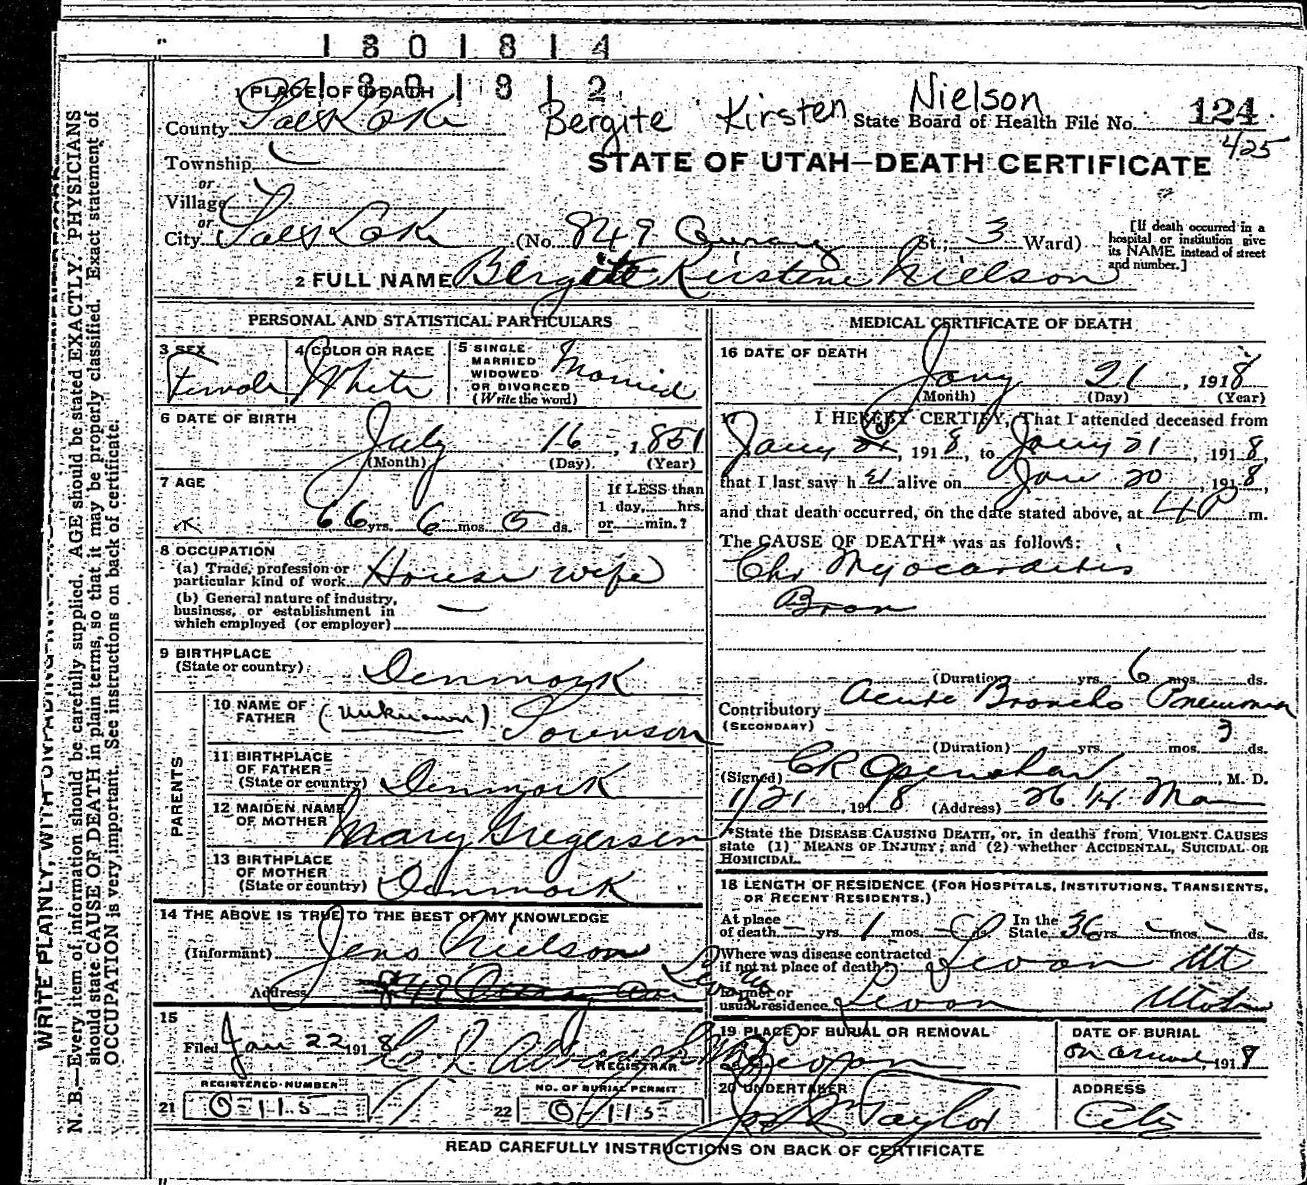 1801814
1801812
1 PLACE OF DEATH
Bergite Kirsten Nielson
County Salt Lake State Board of Health File No. 124
425
Township
STATE OF UTAH—DEATH CERTIFICATE
or
Village
or
City Salt Lake (No. 849 St.; 3 Ward)
[If death occurred in a hospital or institution give its NAME instead of street and number.]
2 FULL NAME Bergite Kirstine Nielson
PERSONAL AND STATISTICAL PARTICULARS
3 SEX Female
4 COLOR OR RACE White
5 SINGLE MARRIED WIDOWED OR DIVORCED (Write the word) Married
6 DATE OF BIRTH
July 16, 1851
(Month) (Day) (Year)
7 AGE
66 yrs. 6 mos. 5 ds.
If LESS than 1 day, hrs. or min.?
8 OCCUPATION
(a) Trade, profession or
particular kind of work House wife
(b) General nature of industry,
business, or establishment in
which employed (or employer)
9 BIRTHPLACE
(State or country) Denmark
PARENTS
10 NAME OF
FATHER (unknown) Sorenson
11 BIRTHPLACE
OF FATHER
(State or country) Denmark
12 MAIDEN NAME
OF MOTHER Mary Gregersen
13 BIRTHPLACE
OF MOTHER
(State or country) Denmark
14 THE ABOVE IS TRUE TO THE BEST OF MY KNOWLEDGE
(Informant) Jens Nielson
Address 849 Levan
15
Filed Jan 22 1918 REGISTRAR
REGISTERED NUMBER
21 0-115
NO. OF BURIAL PERMIT
22 0-115
MEDICAL CERTIFICATE OF DEATH
16 DATE OF DEATH
Jany 21, 1918
(Month) (Day) (Year)
17 I HEREBY CERTIFY, That I attended deceased from
Jany, 1918, to Jany 21, 1918,
that I last saw h er alive on Jan 20, 1918,
and that death occurred, on the date stated above, at 4 P m.
The CAUSE OF DEATH* was as follows:
Chr Myocarditis
Bron
(Duration) yrs. 6 mos. ds.
Contributory Acute Broncho Pneumonia
(SECONDARY)
(Duration) yrs. mos. 3 ds.
(Signed) CR Openshaw, M. D.
1/21, 1918 (Address) 26 Main
*State the DISEASE CAUSING DEATH, or, in deaths from VIOLENT CAUSES
state (1) MEANS OF INJURY; and (2) whether ACCIDENTAL, SUICIDAL OR
HOMICIDAL.
18 LENGTH OF RESIDENCE (FOR HOSPITALS, INSTITUTIONS, TRANSIENTS,
OR RECENT RESIDENTS.)
At place of death — yrs. 1 mos. — ds. In the State 36 yrs. — mos. — ds.
Where was disease contracted
if not at place of death? Levan Ut
Former or
usual residence Levan Utah
19 PLACE OF BURIAL OR REMOVAL
Levan
DATE OF BURIAL
on arrival, 1918
20 UNDERTAKER
Jos Taylor
ADDRESS
City
READ CAREFULLY INSTRUCTIONS ON BACK OF CERTIFICATE
WRITE PLAINLY, WITH UNFADING
N. B.—Every item of information should be carefully supplied. AGE should be stated EXACTLY. PHYSICIANS
should state CAUSE OF DEATH in plain terms, so that it may be properly classified. Exact statement of
OCCUPATION is very important. See instructions on back of certificate.